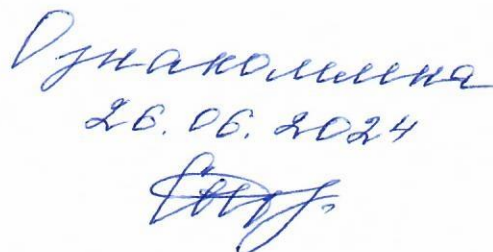 Ознакомлена
26.06.2024